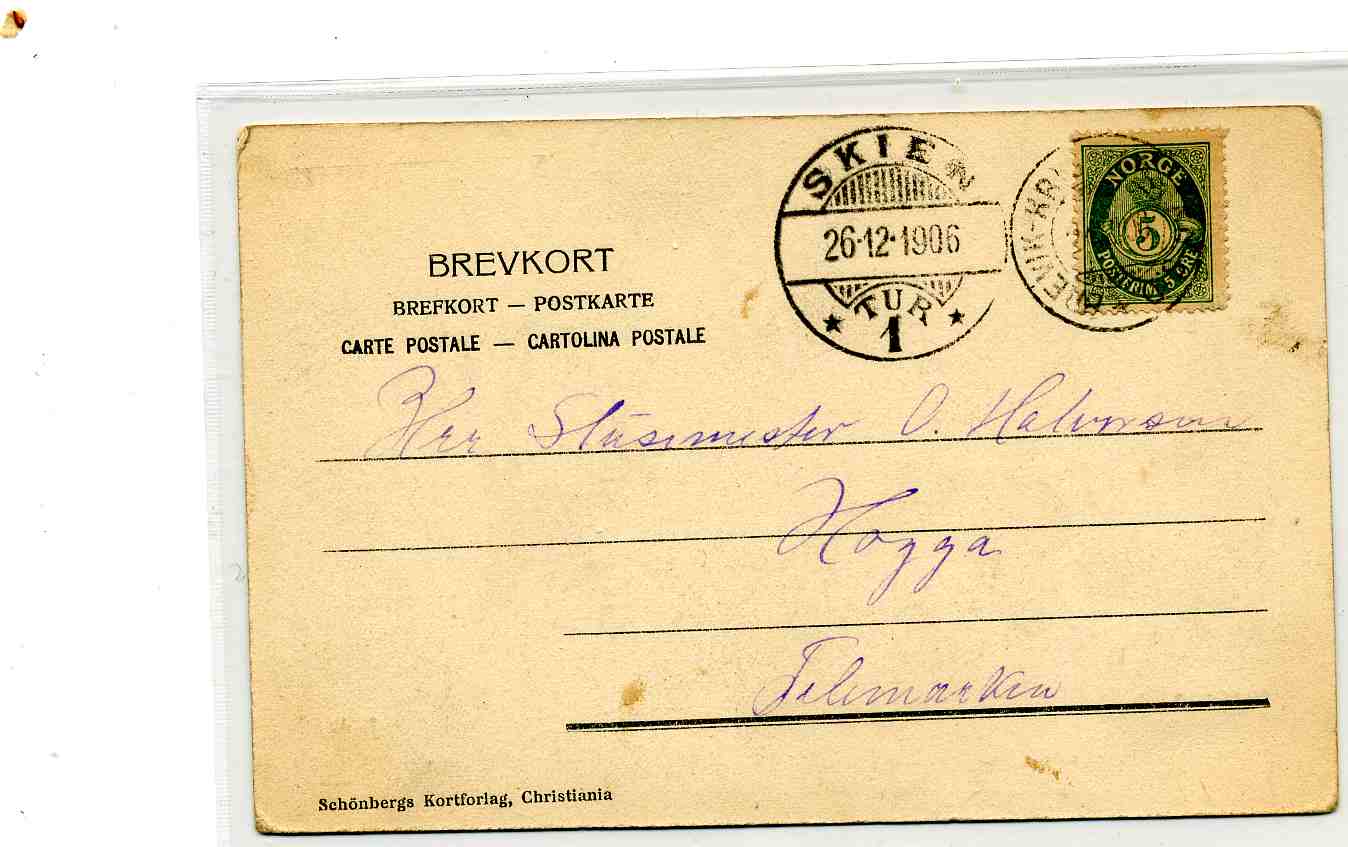 SKIEN
26-12-1906
TUR
1
NORGE
5
POSTFRIM 5 ØRE
BREVKORT
BREFKORT — POSTKARTE
CARTE POSTALE — CARTOLINA POSTALE
Herr Slusemester O. Halvorsen
Hogga
Telemarken
Schönbergs Kortforlag, Christiania